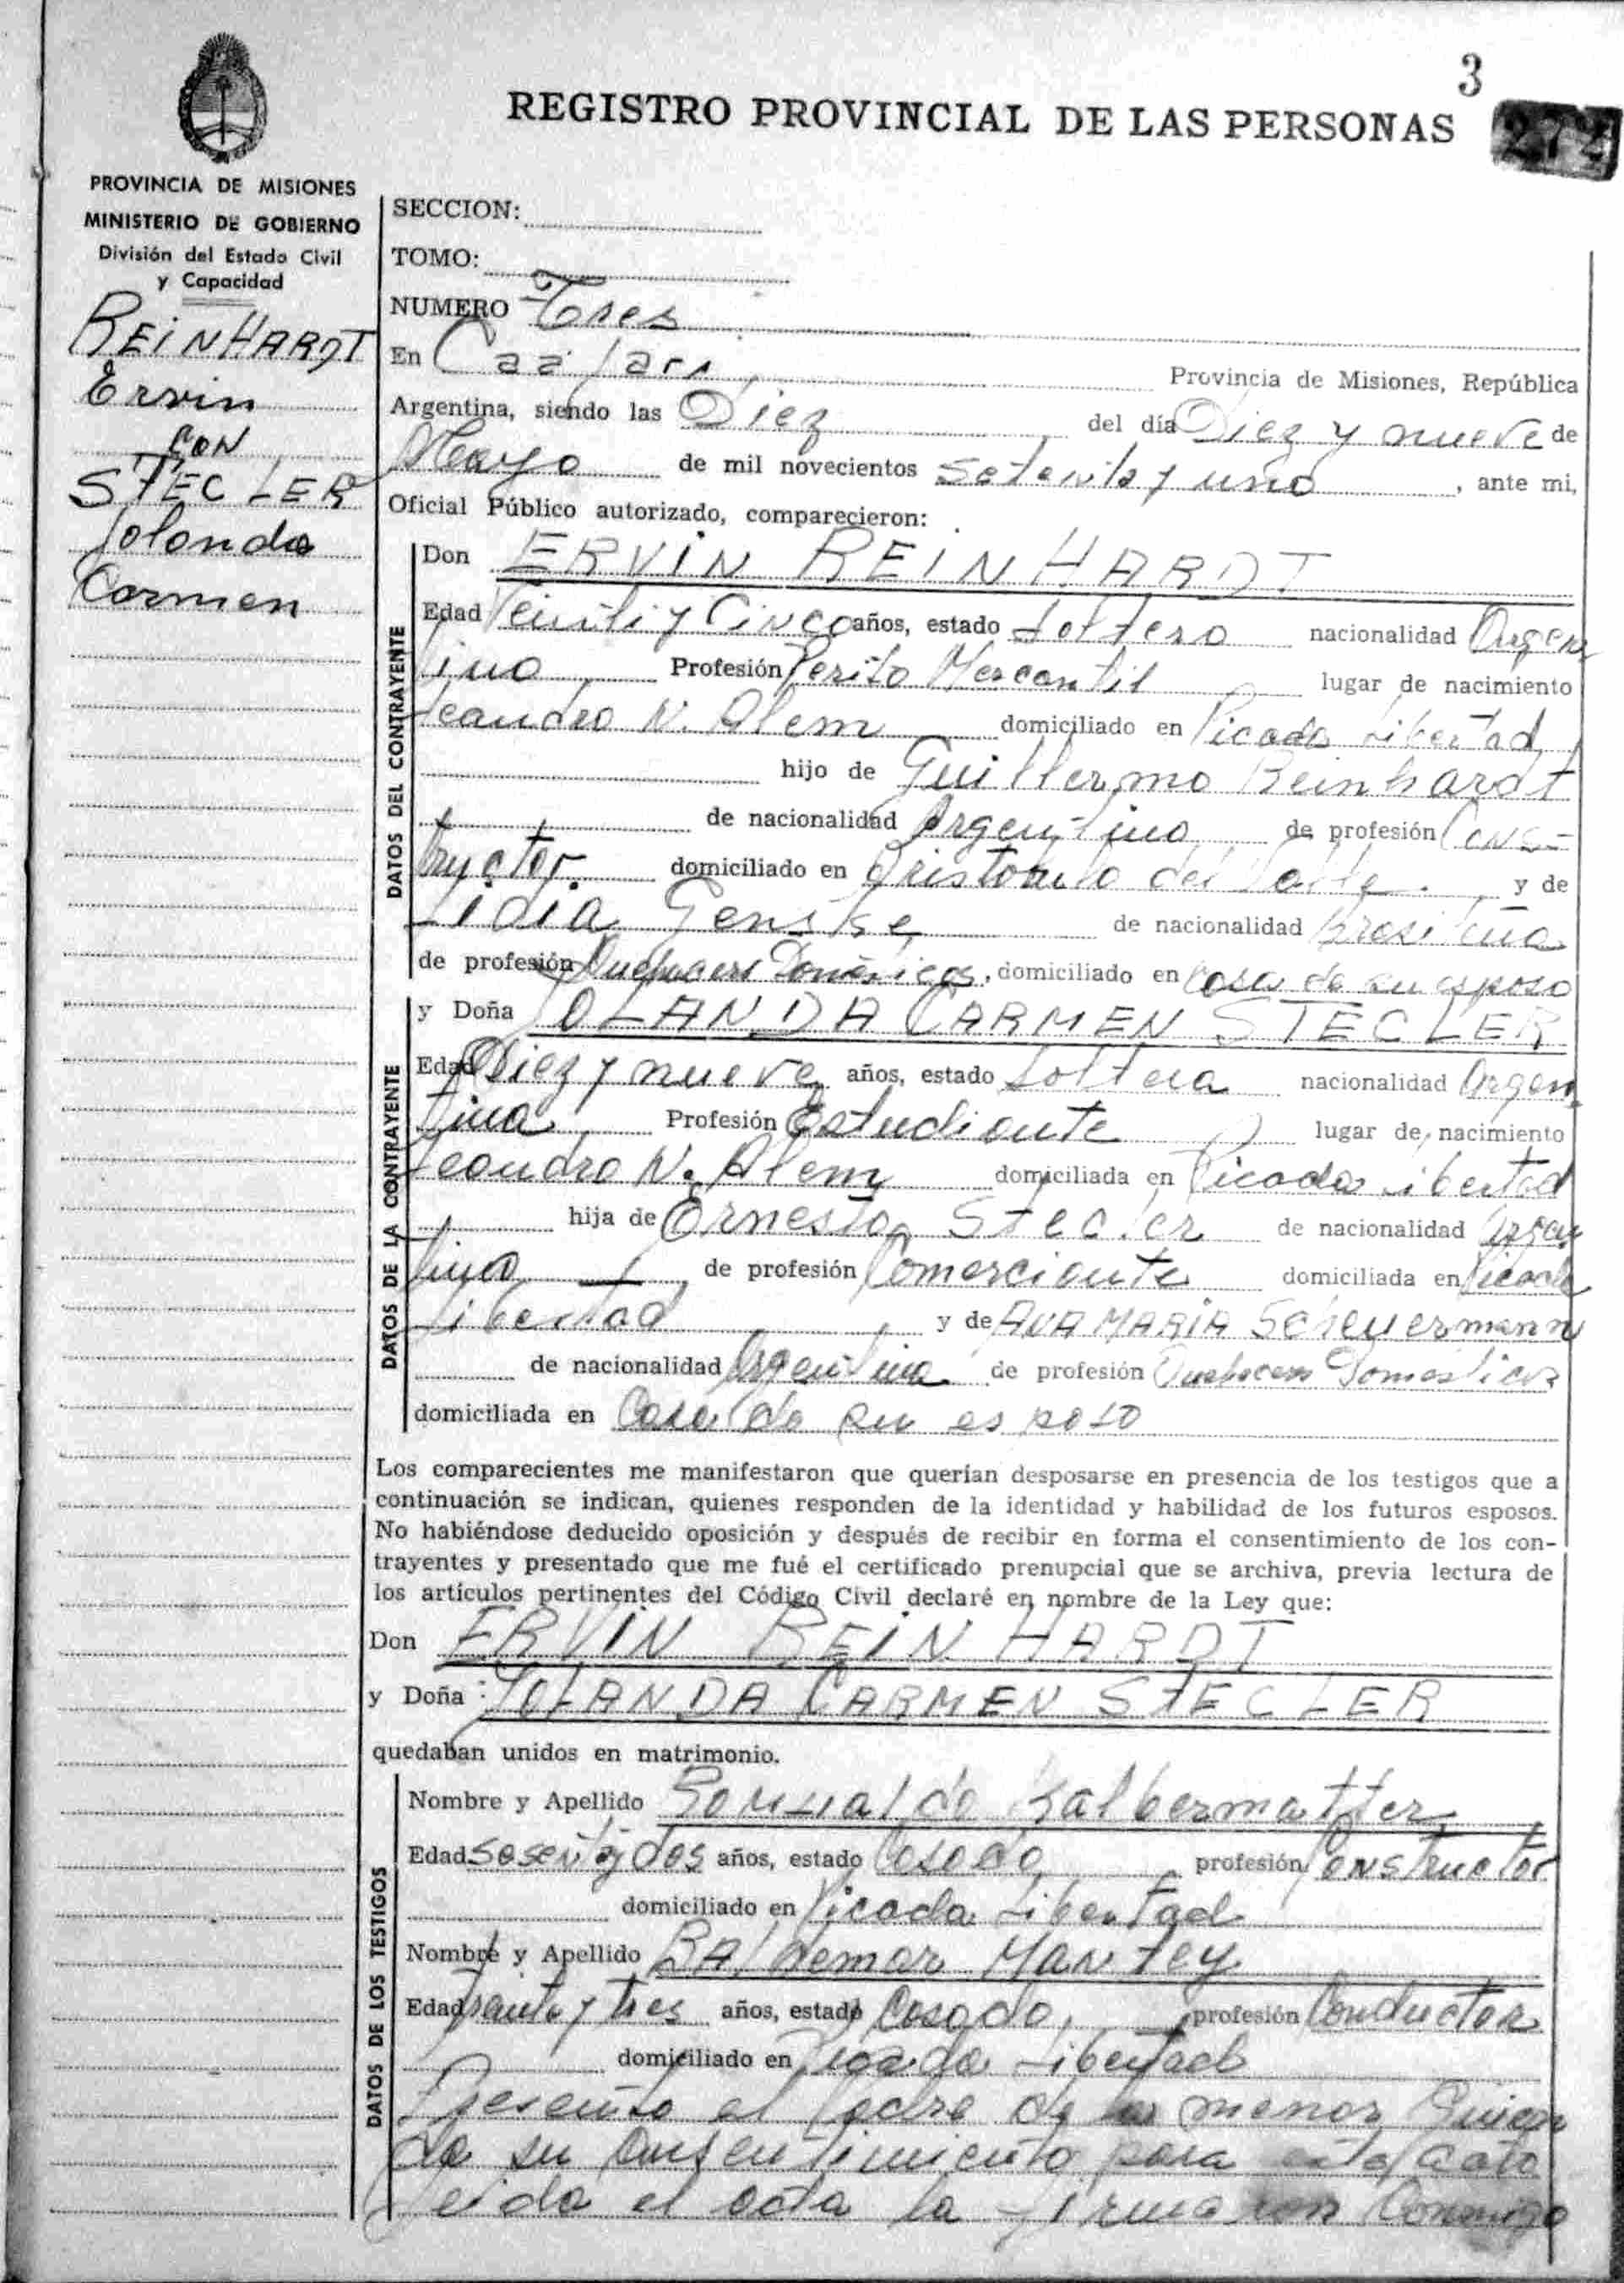 3
REGISTRO PROVINCIAL DE LAS PERSONAS
272
PROVINCIA DE MISIONES
MINISTERIO DE GOBIERNO
División del Estado Civil
y Capacidad
REINHARDT
Ervin
CON
STECLER
Iolanda
Carmen
SECCION:
TOMO:
NUMERO Tres
En Caá Yarí, Provincia de Misiones, República
Argentina, siendo las Diez del día Diez y nueve de
Mayo de mil novecientos setenta y uno, ante mi,
Oficial Público autorizado, comparecieron:
DATOS DEL CONTRAYENTE
Don ERVIN REINHARDT
Edad Veinti y Cinco años, estado Soltero nacionalidad Argen
tino Profesión Perito Mercantil lugar de nacimiento
Leandro N. Alem domiciliado en Picada Libertad
hijo de Guillermo Reinhardt
de nacionalidad Argentino de profesión Cons-
tructor. domiciliado en Aristobulo del Valle. y de
Lidia Genske de nacionalidad Brasileña
de profesión Quehaceres Domésticos, domiciliado en Casa de su esposo
DATOS DE LA CONTRAYENTE
y Doña IOLANDA CARMEN STECLER
Edad Diez y nueve años, estado Soltera nacionalidad Argen
tina Profesión Estudiante lugar de nacimiento
Leandro N. Alem domiciliada en Picada Libertad
hija de Ernesto Stecler de nacionalidad Argen
tino, de profesión Comerciante domiciliada en Picada
Libertad y de ANA MARIA Scheuermann
de nacionalidad Argentina de profesión Quehaceres Domesticos
domiciliada en Casa de su esposo
Los comparecientes me manifestaron que querían desposarse en presencia de los testigos que a
continuación se indican, quienes responden de la identidad y habilidad de los futuros esposos.
No habiéndose deducido oposición y después de recibir en forma el consentimiento de los con-
trayentes y presentado que me fué el certificado prenupcial que se archiva, previa lectura de
los artículos pertinentes del Código Civil declaré en nombre de la Ley que:
Don ERVIN REINHARDT
y Doña IOLANDA CARMEN STECLER
quedaban unidos en matrimonio.
DATOS DE LOS TESTIGOS
Nombre y Apellido Romualdo Kalbermatter
Edad sesenta y dos años, estado Casado profesión Constructor
domiciliado en Picada Libertad
Nombre y Apellido Baldemar Mantey
Edad treinta y tres años, estado Casado, profesión Conductor
domiciliado en Picada Libertad
Presente el Padre de la menor Quien
da su consentimiento para este acto
Leida el acta la firmaron Conmigo